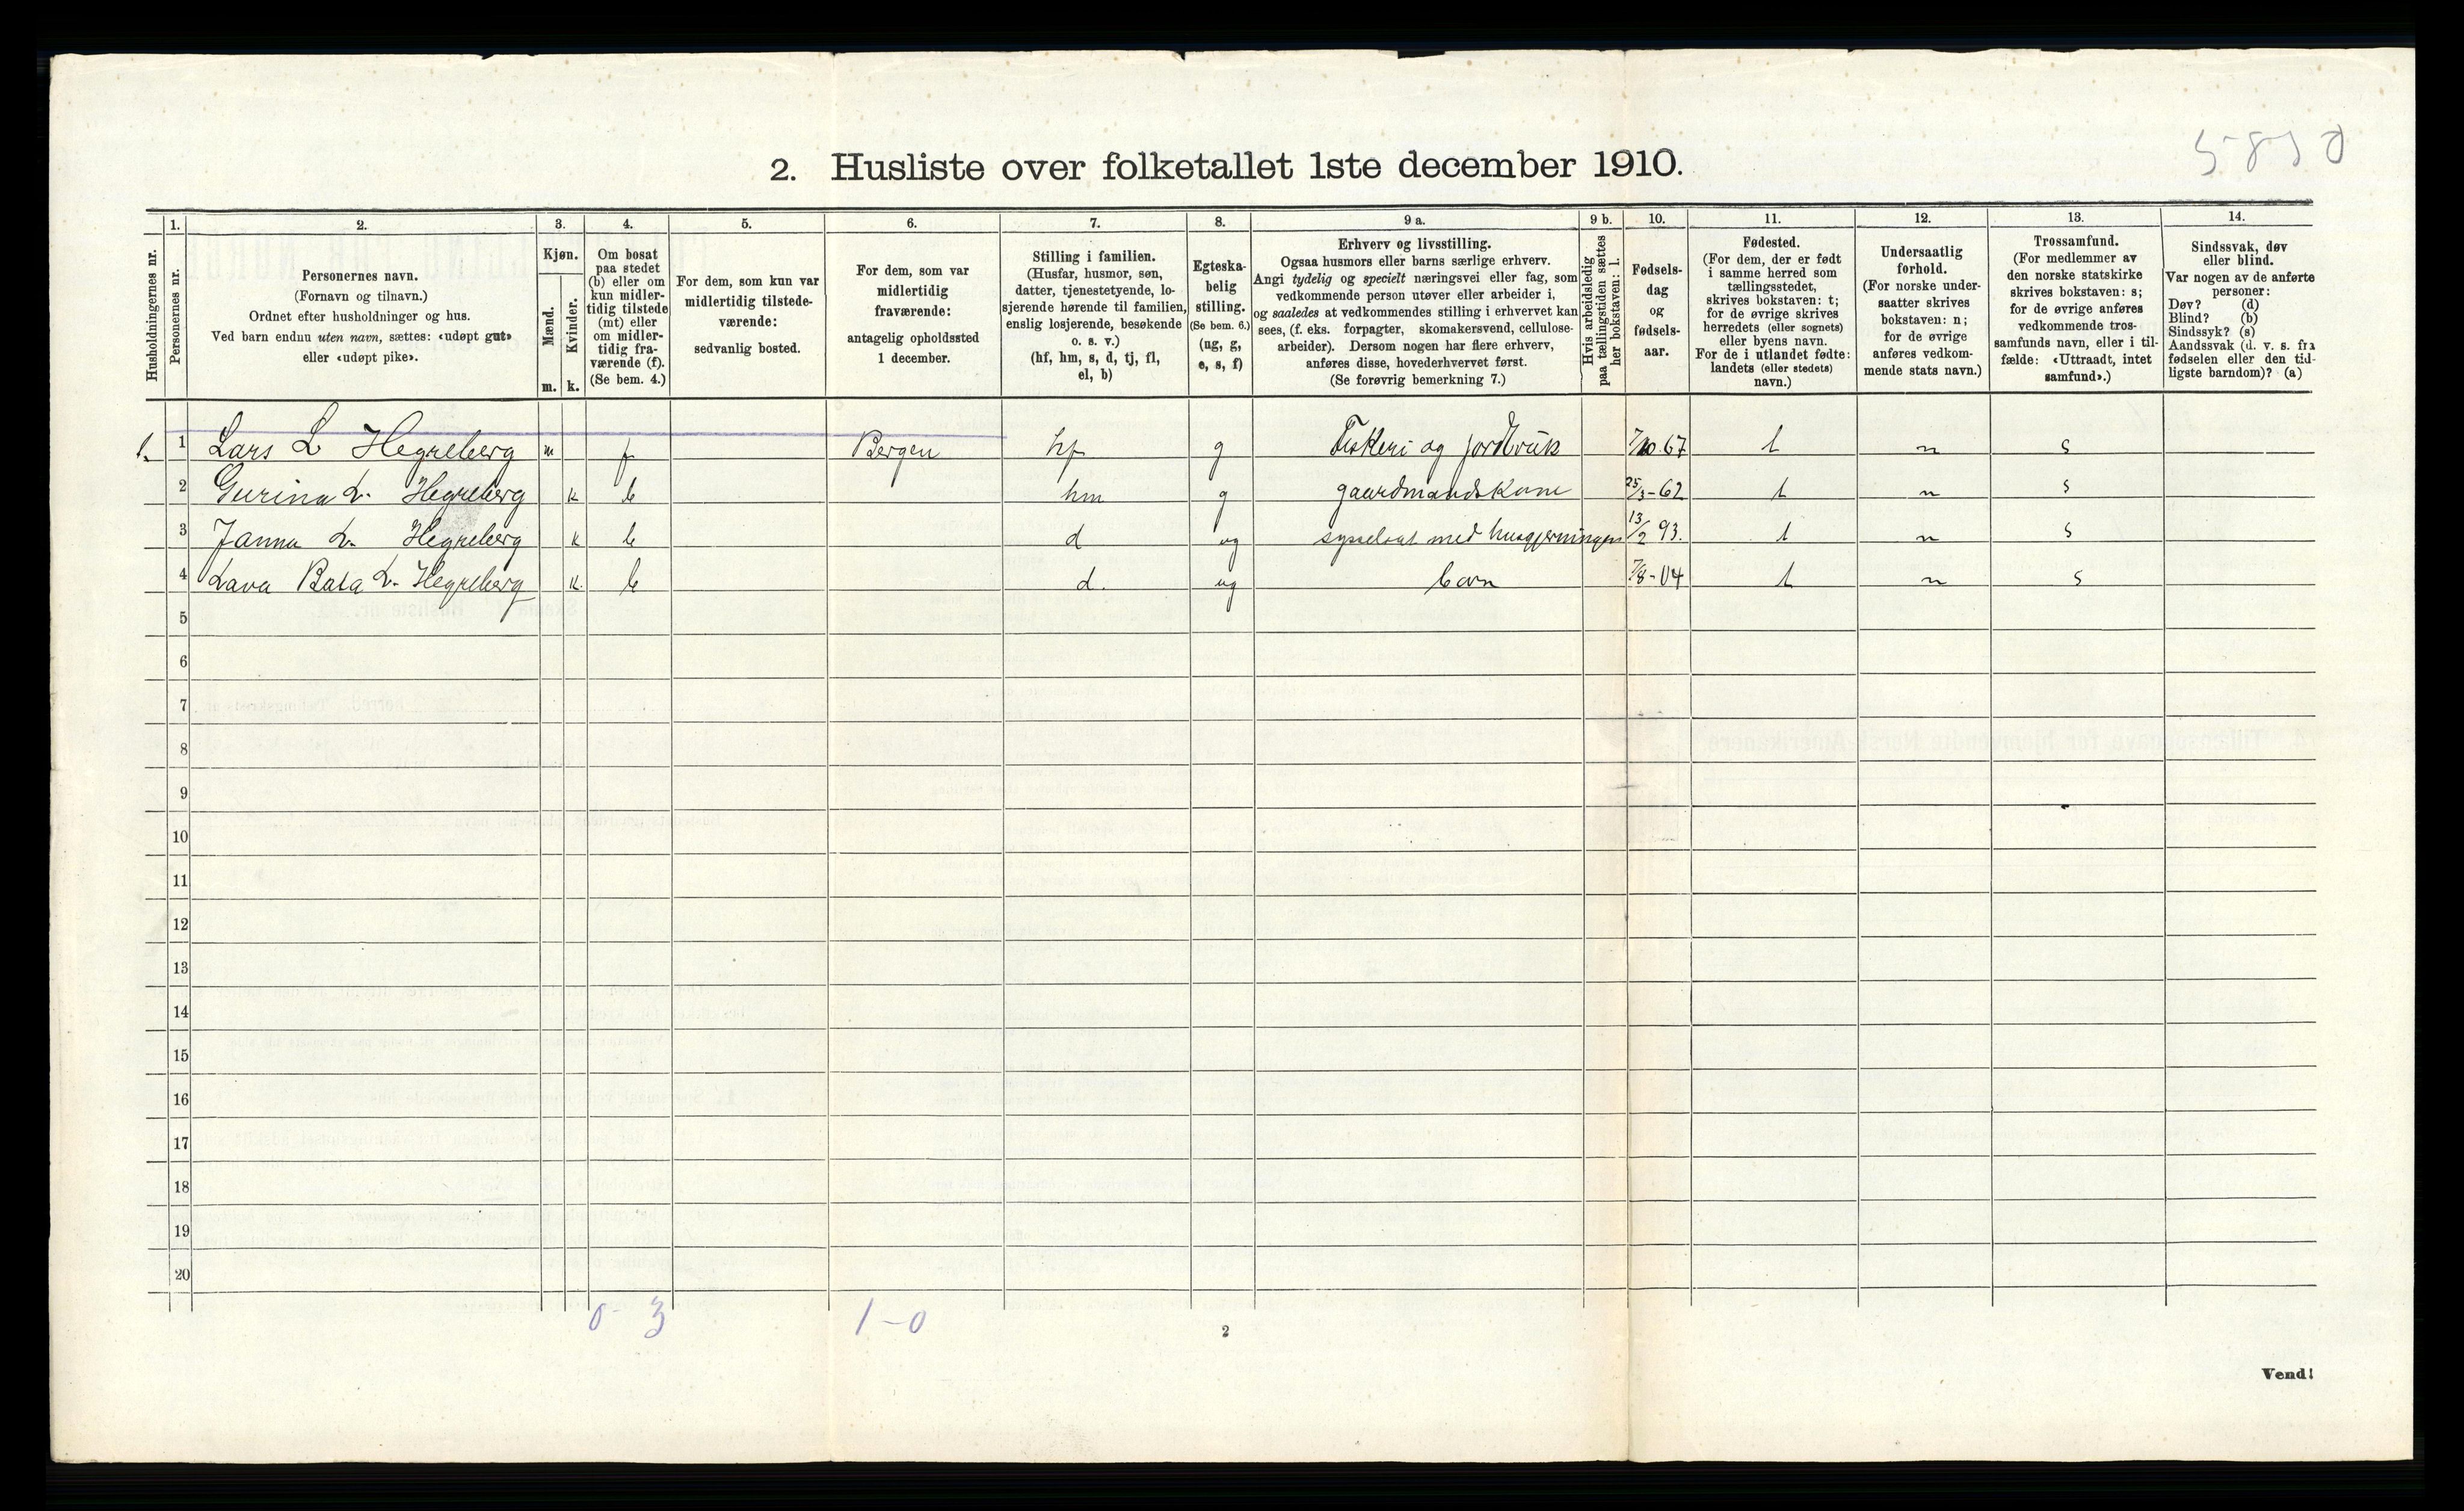 5830
2. Husliste over folketallet 1ste december 1910.
Husholdningernes nr.
1.
Personernes nr.
2.
Personernes navn.
(Fornavn og tilnavn.)
Ordnet efter husholdninger og hus.
Ved barn endnu uten navn, sættes: «udøpt gut»
eller «udøpt pike».
3.
Kjøn.
Mænd.
m.
Kvinder.
k.
4.
Om bosat
paa stedet
(b) eller om
kun midler-
tidig tilstede
(mt) eller
om midler-
tidig fra-
værende (f).
(Se bem. 4.)
5.
For dem, som kun var
midlertidig tilstede-
værende:
sedvanlig bosted.
6.
For dem, som var
midlertidig
fraværende:
antagelig opholdssted
1 december.
7.
Stilling i familien.
(Husfar, husmor, søn,
datter, tjenestetyende, lo-
sjerende hørende til familien,
enslig losjerende, besøkende
o. s. v.)
(hf, hm, s, d, tj, fl,
el, b)
8.
Egteska-
belig
stilling.
(Se bem. 6.)
(ug, g,
e, s, f)
9 a.
Erhverv og livsstilling.
Ogsaa husmors eller barns særlige erhverv.
Angi tydelig og specielt næringsvei eller fag, som
vedkommende person utøver eller arbeider i,
og saaledes at vedkommendes stilling i erhvervet kan
sees, (f. eks. forpagter, skomakersvend, cellulose-
arbeider). Dersom nogen har flere erhverv,
anføres disse, hovederhvervet først.
(Se forøvrig bemerkning 7.)
9 b.
Hvis arbeidsledig
paa tællingstiden sættes
her bokstaven: l.
10.
Fødsels-
dag
og
fødsels-
aar.
11.
Fødested.
(For dem, der er født
i samme herred som
tællingsstedet,
skrives bokstaven: t;
for de øvrige skrives
herredets (eller sognets)
eller byens navn.
For de i utlandet fødte:
landets (eller stedets)
navn.)
12.
Undersaatlig
forhold.
(For norske under-
saatter skrives
bokstaven: n;
for de øvrige
anføres vedkom-
mende stats navn.)
13.
Trossamfund.
(For medlemmer av
den norske statskirke
skrives bokstaven: s;
for de øvrige anføres
vedkommende tros-
samfunds navn, eller i til-
fælde: «Uttraadt, intet
samfund».)
14.
Sindssvak, døv
eller blind.
Var nogen av de anførte
personer:
Døv? (d)
Blind? (b)
Sindssyk? (s)
Aandssvak (d. v. s. fra
fødselen eller den tid-
ligste barndom)? (a)
1. 1 Lars L Hegreberg m f Bergen hf g Fiskeri og jordbruk 7/10 67 t n s
2 Gurina L. Hegreberg k b hm g gaardmandskone 25/3-62 t n s
3 Janna L. Hegreberg k b d ug sysselsat med husgjerningen 13/2 93. t n s
4 Lava L. Hegreberg k. b d. ug barn 7/8-04 t n s
5
6
7
8
9
10
11
12
13
14
15
16
17
18
19
20
0-3 1-0
2
Vend!